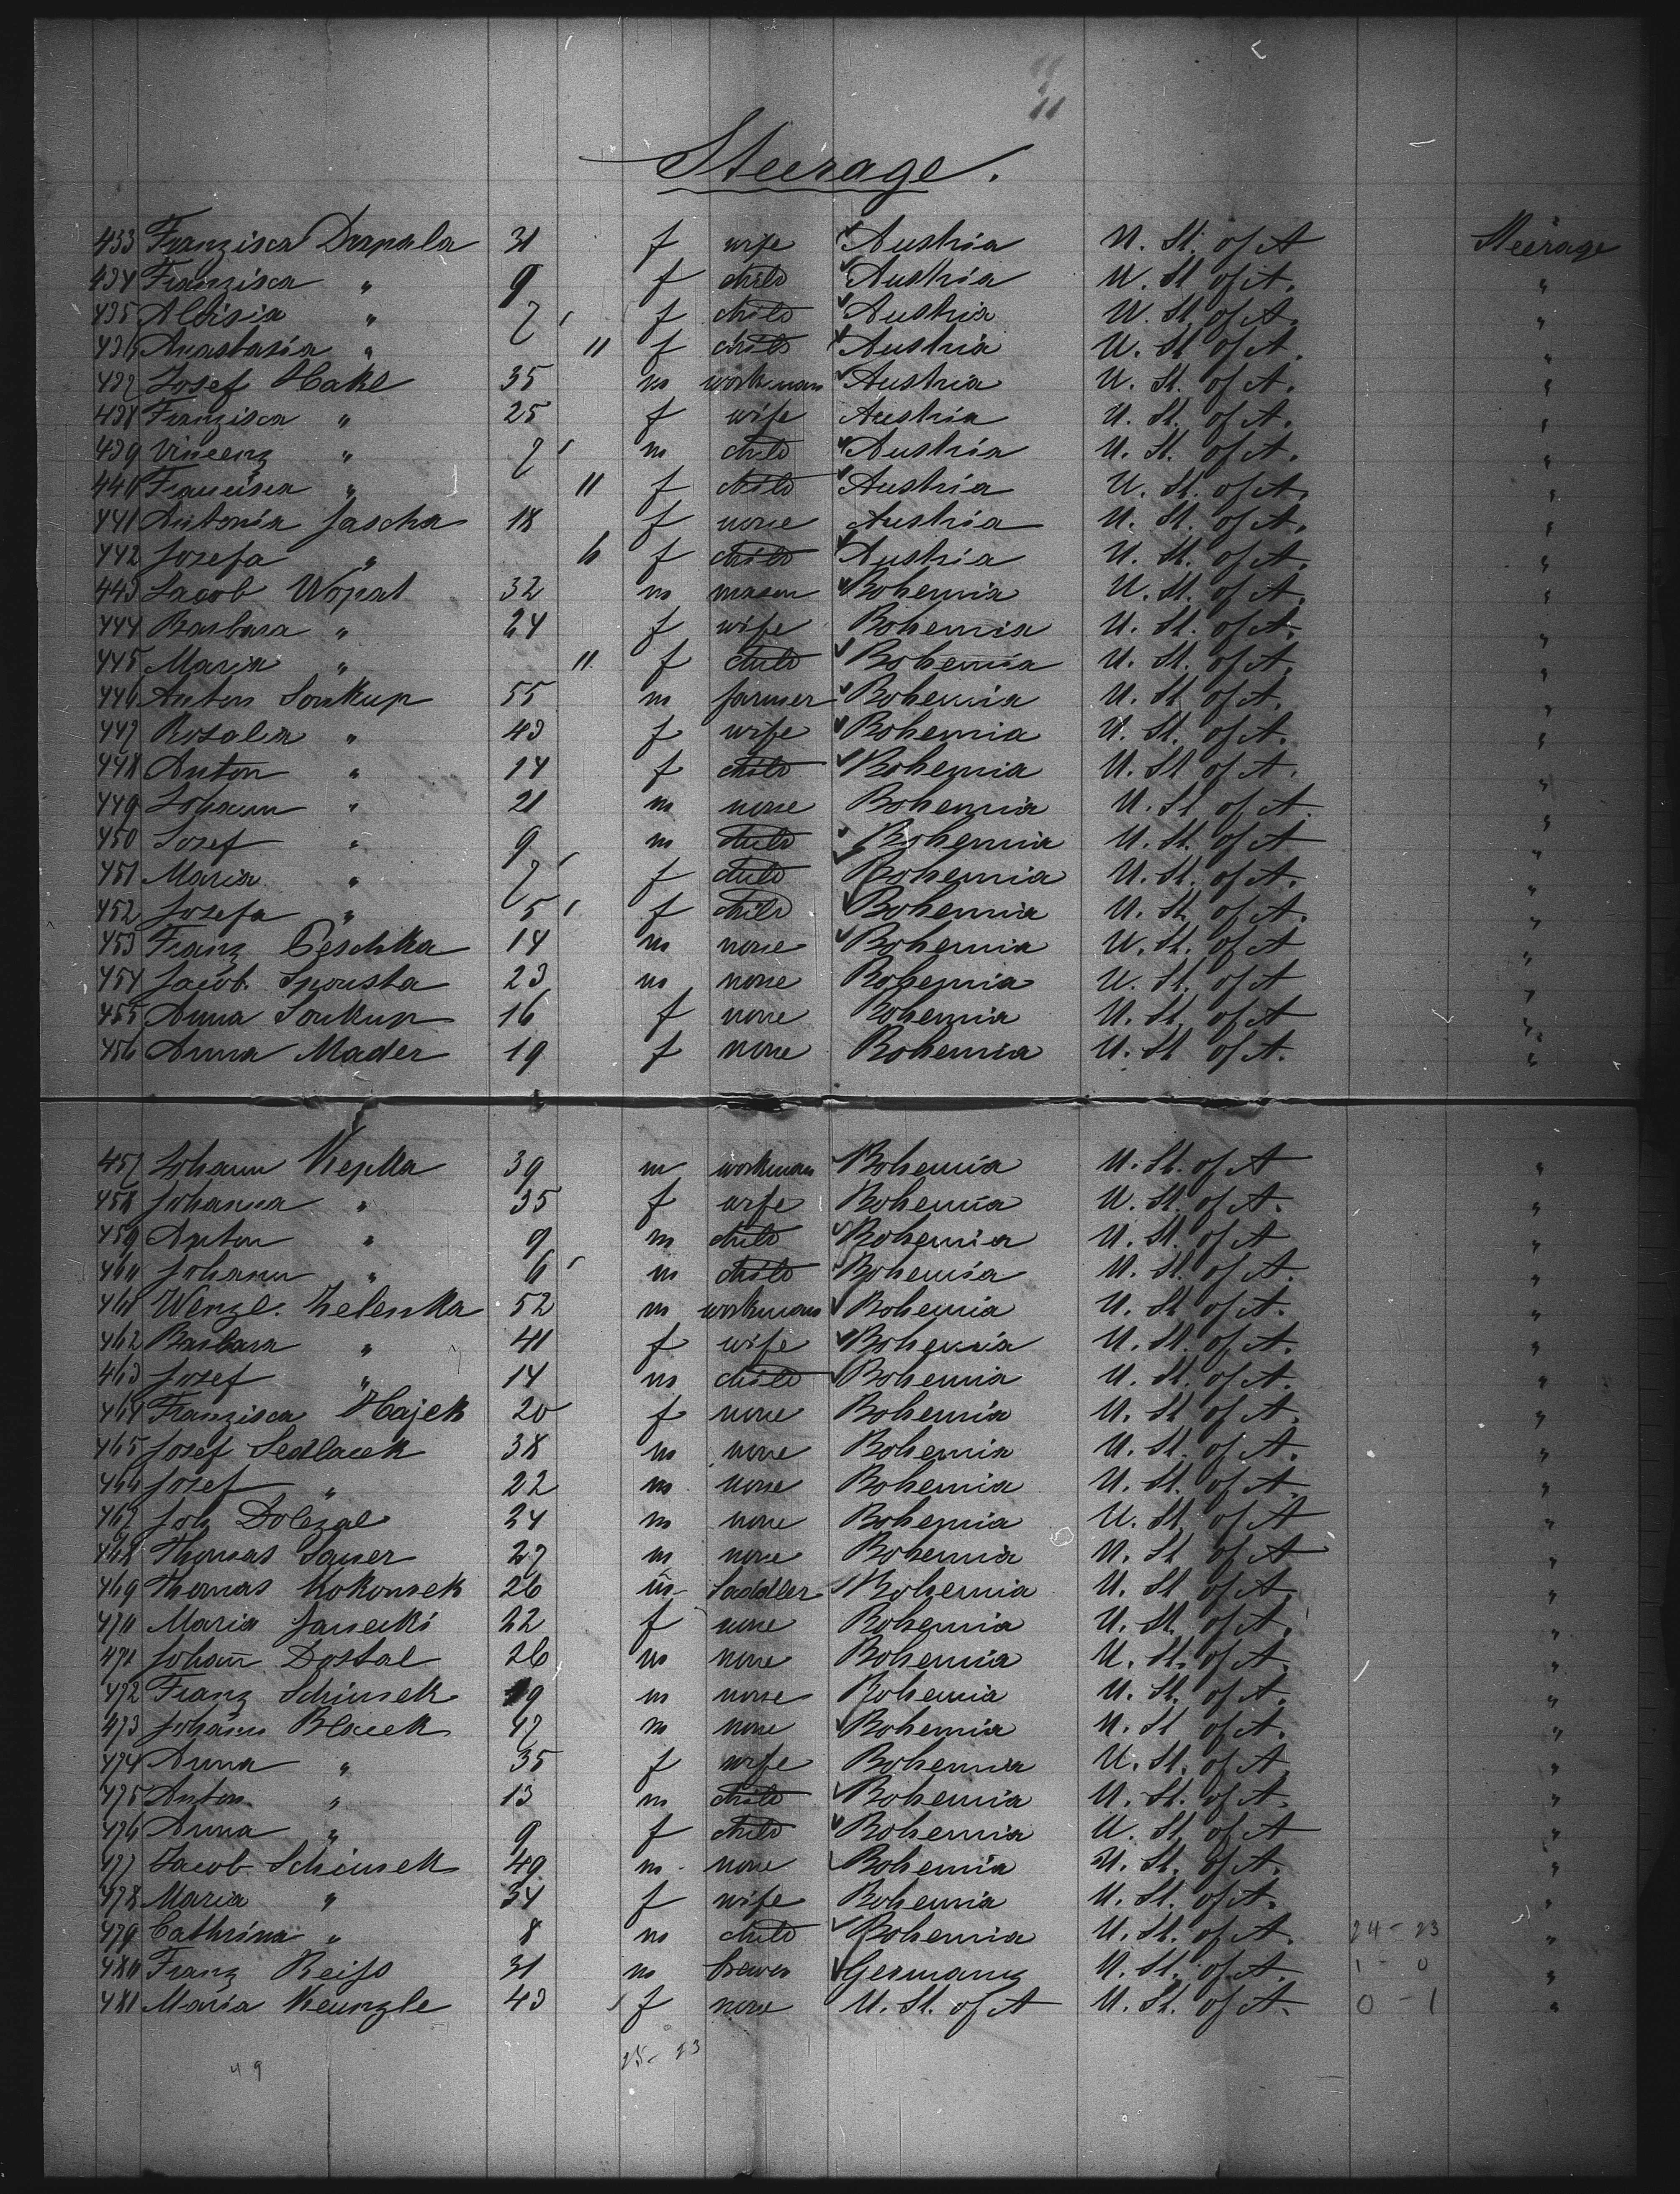 11
Steerage.
433 Franzisca Drapala 31 f wife Austria U. St. of A Steerage
434 Franzisca " 9 f child Austria U. St. of A. "
435 Aloisia " 7 f child Austria U. St. of A. "
436 Anastasia " 11 f child Austria U. St. of A. "
437 Josef Hakl 35 m workman Austria U. St. of A. "
438 Franzisca " 25 f wife Austria U. St. of A. "
439 Vincenz " 7 m child Austria U. St. of A. "
440 Francisca " 11 f child Austria U. St. of A. "
441 Antonia Jascha 18 f none Austria U. St. of A. "
442 Josefa " 6 f child Austria U. St. of A. "
443 Jacob Wopat 32 m mason Bohemia U. St. of A. "
444 Barbara " 24 f wife Bohemia U. St. of A. "
445 Maria " 11 f child Bohemia U. St. of A. "
446 Anton Soukup 55 m farmer Bohemia U. St. of A. "
447 Rosalia " 43 f wife Bohemia U. St. of A. "
448 Anton " 14 f child Bohemia U. St. of A. "
449 Johann " 21 m none Bohemia U. St. of A "
450 Josef " 9 m child Bohemia U. St. of A "
451 Maria " 7 f child Bohemia U. St. of A. "
452 Josefa " 5 f child Bohemia U. St. of A. "
453 Franz Peschka 14 m none Bohemia U. St. of A "
454 Jacob Spousta 23 m none Bohemia U. St. of A "
455 Anna Soukup 16 f none Bohemia U. St. of A "
456 Anna Mader 19 f none Bohemia U. St. of A. "
457 Johann Kepka 39 m workman Bohemia U. St. of A "
458 Johanna " 35 f wife Bohemia U. St. of A. "
459 Anton " 9 m child Bohemia U. St. of A "
460 Johann " 6 m child Bohemia U. St. of A. "
461 Wenzl. Zelenka 52 m workman Bohemia U. St. of A. "
462 Barbara " 41 f wife Bohemia U. St. of A. "
463 Josef " 14 m child Bohemia U. St. of A. "
464 Franzisca Hajek 20 f none Bohemia U. St. of A. "
465 Josef Sedlacek 38 m none Bohemia U. St. of A. "
466 Josef " 22 m none Bohemia U. St. of A. "
467 Joh Dolezal 34 m none Bohemia U. St. of A "
468 Thomas Sauer 27 m none Bohemia U. St. of A "
469 Thomas Kokonsek 26 m saddler Bohemia U. St. of A. "
470 Maria Janecki 22 f none Bohemia U. St. of A. "
471 Johan̄ Dostal 26 m none Bohemia U. St. of A. "
472 Franz Schimek 19 m none Bohemia U. St. of A. "
473 Johann Blacek 47 m none Bohemia U. St. of A. "
474 Anna " 35 f wife Bohemia U. St. of A "
475 Anton " 13 m child Bohemia U. St. of A. "
476 Anna " 9 f child Bohemia U. St. of A "
477 Jacob Schimek 49 m none Bohemia U. St. of A. "
478 Maria " 34 f wife Bohemia U. St. of A. "
479 Cathrina " 8 m child Bohemia U. St. of A. 24 - 23 "
480 Franz Reiss 31 m brewer Germany U. St. of A. 1 - 0 "
481 Maria Kuenzle 43 f none U. St. of A U. St. of A. 0 - 1 "
25 - 23
49